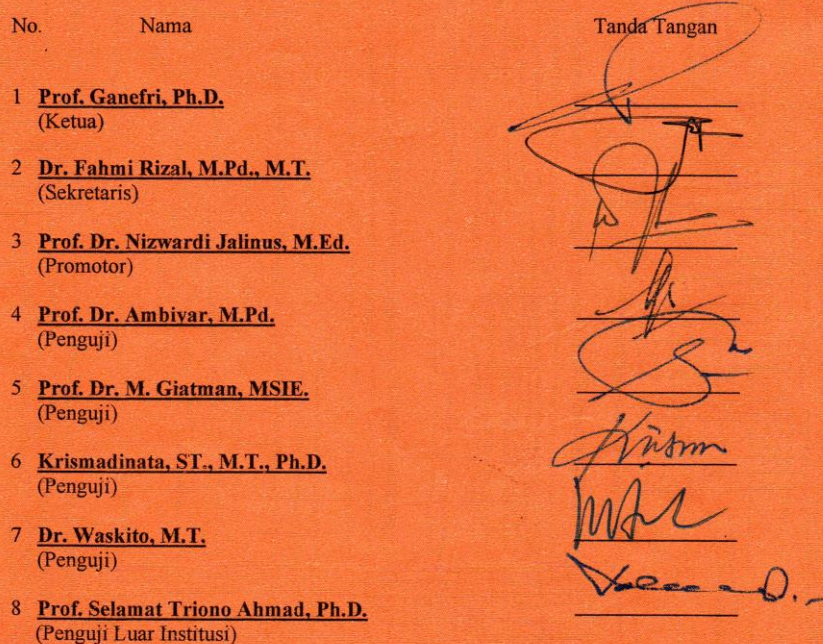 No. Nama Tanda Tangan
1 Prof. Ganefri, Ph.D.
(Ketua)
2 Dr. Fahmi Rizal, M.Pd., M.T.
(Sekretaris)
3 Prof. Dr. Nizwardi Jalinus, M.Ed.
(Promotor)
4 Prof. Dr. Ambiyar, M.Pd.
(Penguji)
5 Prof. Dr. M. Giatman, MSIE.
(Penguji)
6 Krismadinata, ST., M.T., Ph.D.
(Penguji)
7 Dr. Waskito, M.T.
(Penguji)
8 Prof. Selamat Triono Ahmad, Ph.D.
(Penguji Luar Institusi)